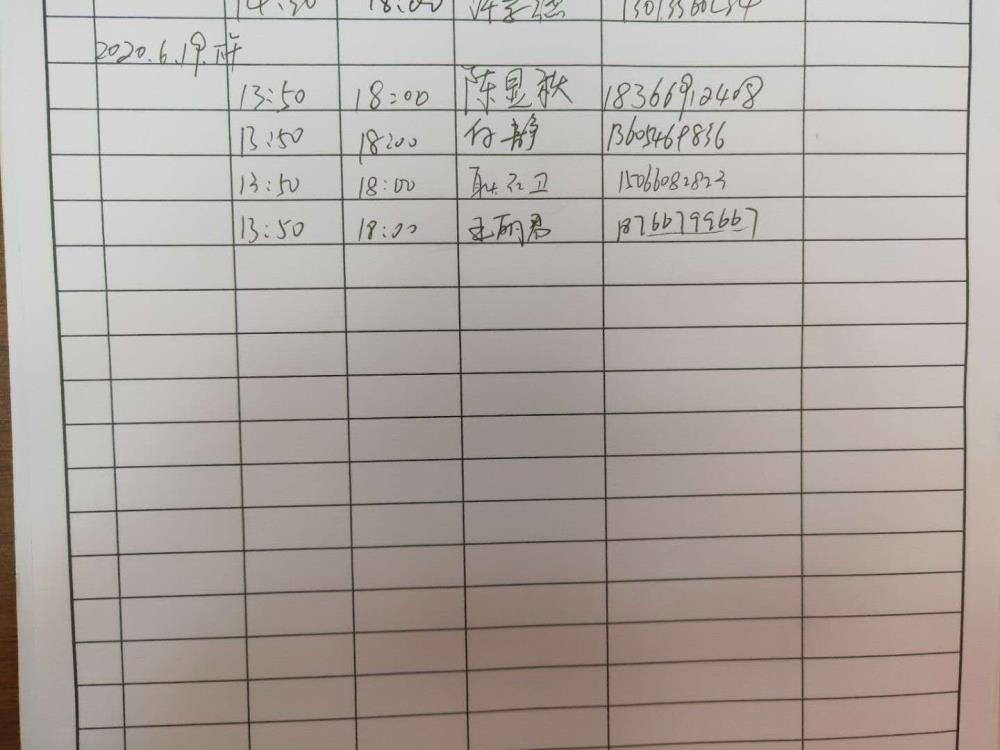 14:30 18:00
2020.6.19.下午
13:50 18:00 陈显秩 18366912408
13:50 18:00 付静 13605469836
13:50 18:00 耿红卫 15066082823
13:50 18:00 王丽君 18766799667